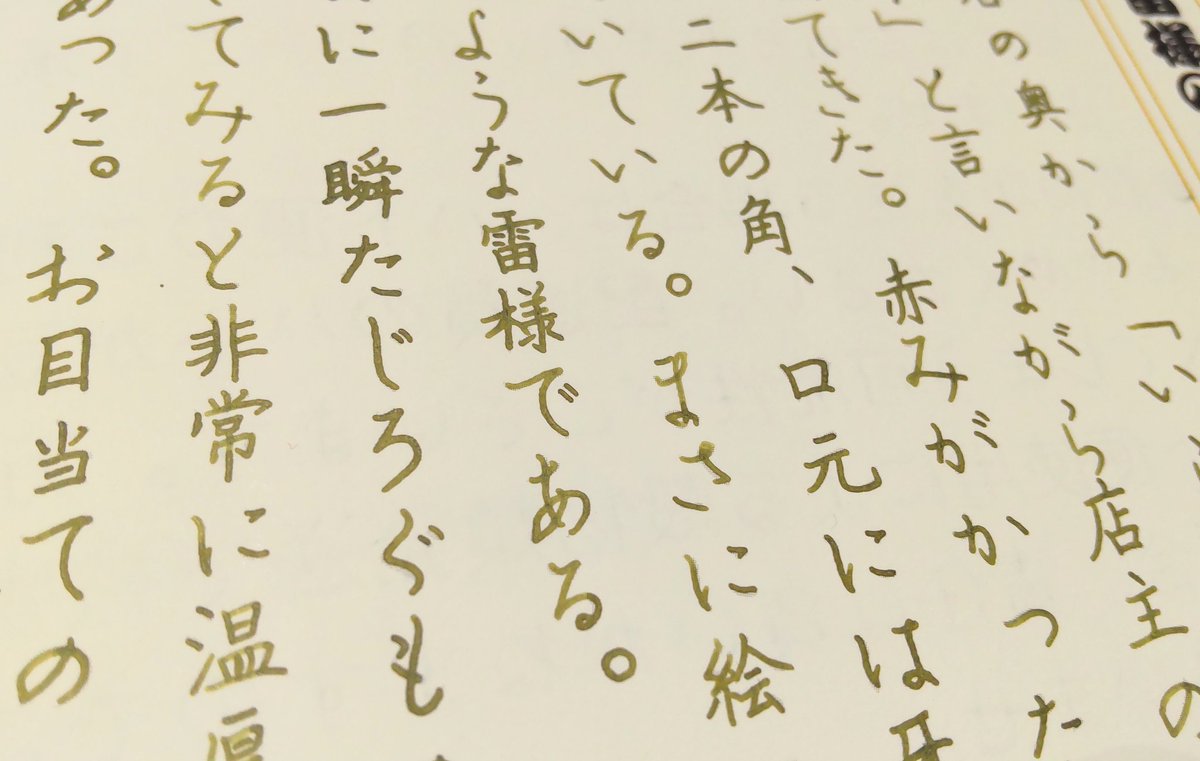 様の
の奥から「い
」と言いながら店主の
てきた。赤みがかった
二本の角、口元には牙
いている。まさに絵
ような雷様である。
に一瞬たじろぐも
てみると非常に温厚
あった。お目当ての